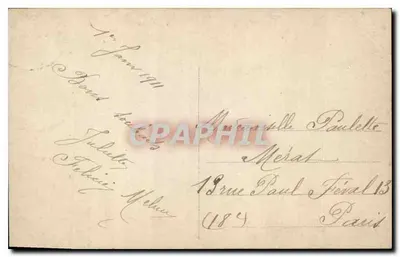 1er Janv 1911
Bons souhaits
Juliette
Félicie
Mademoiselle Paulette
Mérat
13 rue Paul Féval 13
(18e) Paris
CPAPHIL